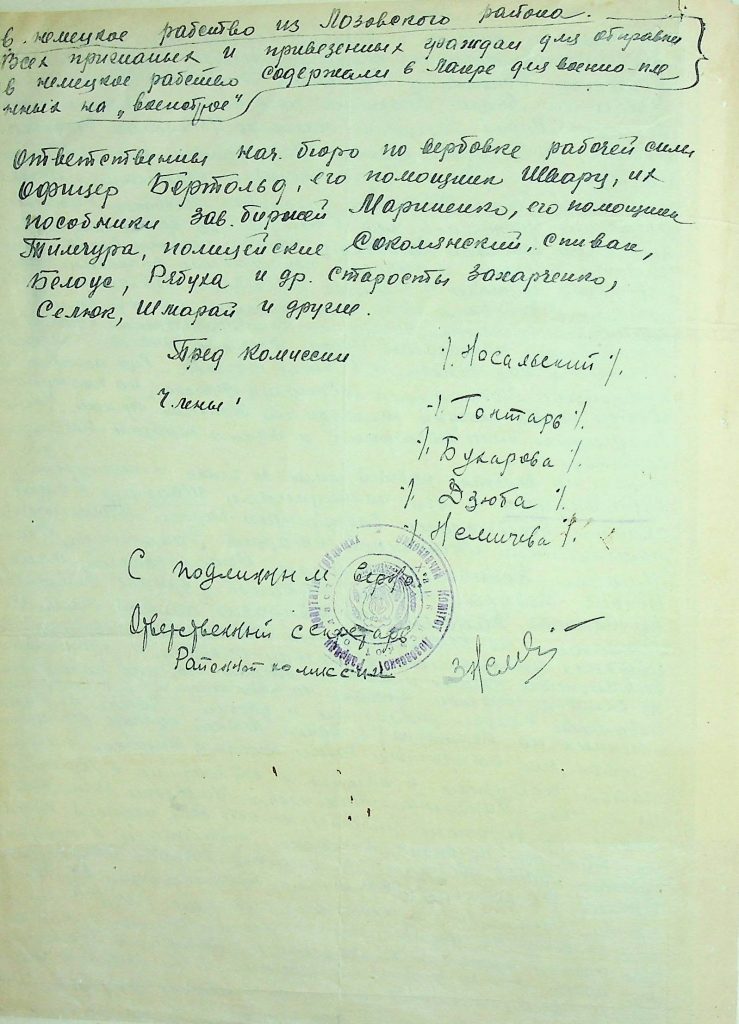 в немецкое рабство из Лозовского района.
Всех пригнаных и привезенных граждан для отправки
в немецкое рабство содержали в лагре для военно-пле
нных на „военстрое"
Ответственны нач. бюро по вербовке рабочей сили
Офицер Бертольд, его помощник Шварц, их
пособники зав. биржей Мариненко, его помощник
Тимчура, полицейские Соколянский, Спивак,
Белоус, Рябуха и др. старосты Захарченко,
Селюк, Шмарай и другие.
Пред комиссии /Носальский/.
Члены: /Гонтарь/.
/Букарова/.
/Дзюба/.
/Немичева/.
С подлинным верно:
Ответственный секретарь
Районной комиссии